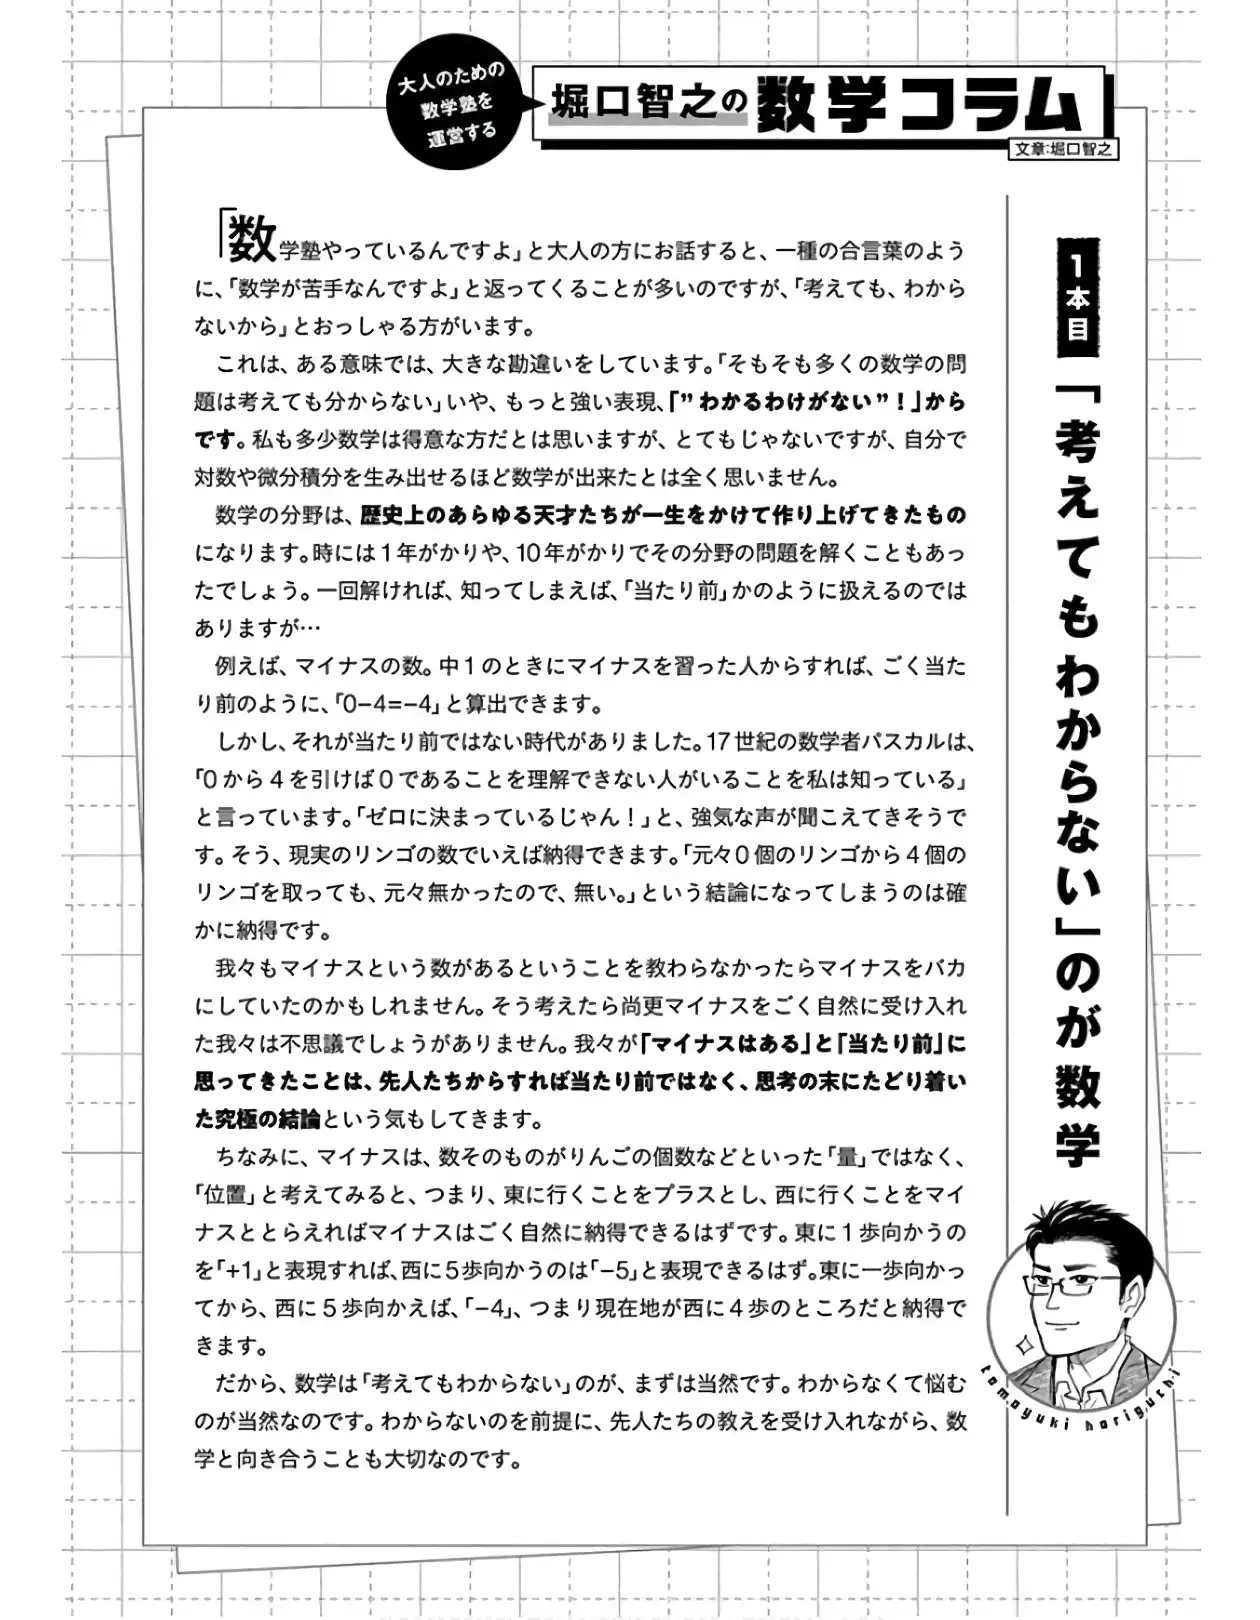 大人のための
数学塾を
運営する
堀口智之の数学コラム
文章:堀口智之
1本目
「考えてもわからない」のが数学
「数学塾やっているんですよ」と大人の方にお話すると、一種の合言葉のよう
に、「数学が苦手なんですよ」と返ってくることが多いのですが、「考えても、わから
ないから」とおっしゃる方がいます。
これは、ある意味では、大きな勘違いをしています。「そもそも多くの数学の問
題は考えても分からない」いや、もっと強い表現、「”わかるわけがない”！」から
です。私も多少数学は得意な方だとは思いますが、とてもじゃないですが、自分で
対数や微分積分を生み出せるほど数学が出来たとは全く思いません。
数学の分野は、歴史上のあらゆる天才たちが一生をかけて作り上げてきたもの
になります。時には1年がかりや、10年がかりでその分野の問題を解くこともあっ
たでしょう。一回解ければ、知ってしまえば、「当たり前」かのように扱えるのでは
ありますが…
例えば、マイナスの数。中1のときにマイナスを習った人からすれば、ごく当た
り前のように、「0−4=−4」と算出できます。
しかし、それが当たり前ではない時代がありました。17世紀の数学者パスカルは、
「0から4を引けば0であることを理解できない人がいることを私は知っている」
と言っています。「ゼロに決まっているじゃん！」と、強気な声が聞こえてきそうで
す。そう、現実のリンゴの数でいえば納得できます。「元々0個のリンゴから4個の
リンゴを取っても、元々無かったので、無い。」という結論になってしまうのは確
かに納得です。
我々もマイナスという数があるということを教わらなかったらマイナスをバカ
にしていたのかもしれません。そう考えたら尚更マイナスをごく自然に受け入れ
た我々は不思議でしょうがありません。我々が「マイナスはある」と「当たり前」に
思ってきたことは、先人たちからすれば当たり前ではなく、思考の末にたどり着い
た究極の結論という気もしてきます。
ちなみに、マイナスは、数そのものがりんごの個数などといった「量」ではなく、
「位置」と考えてみると、つまり、東に行くことをプラスとし、西に行くことをマイ
ナスととらえればマイナスはごく自然に納得できるはずです。東に1歩向かうの
を「+1」と表現すれば、西に5歩向かうのは「−5」と表現できるはず。東に一歩向かっ
てから、西に5歩向かえば、「−4」、つまり現在地が西に4歩のところだと納得で
きます。
だから、数学は「考えてもわからない」のが、まずは当然です。わからなくて悩む
のが当然なのです。わからないのを前提に、先人たちの教えを受け入れながら、数
学と向き合うことも大切なのです。
tomoyuki horiguchi